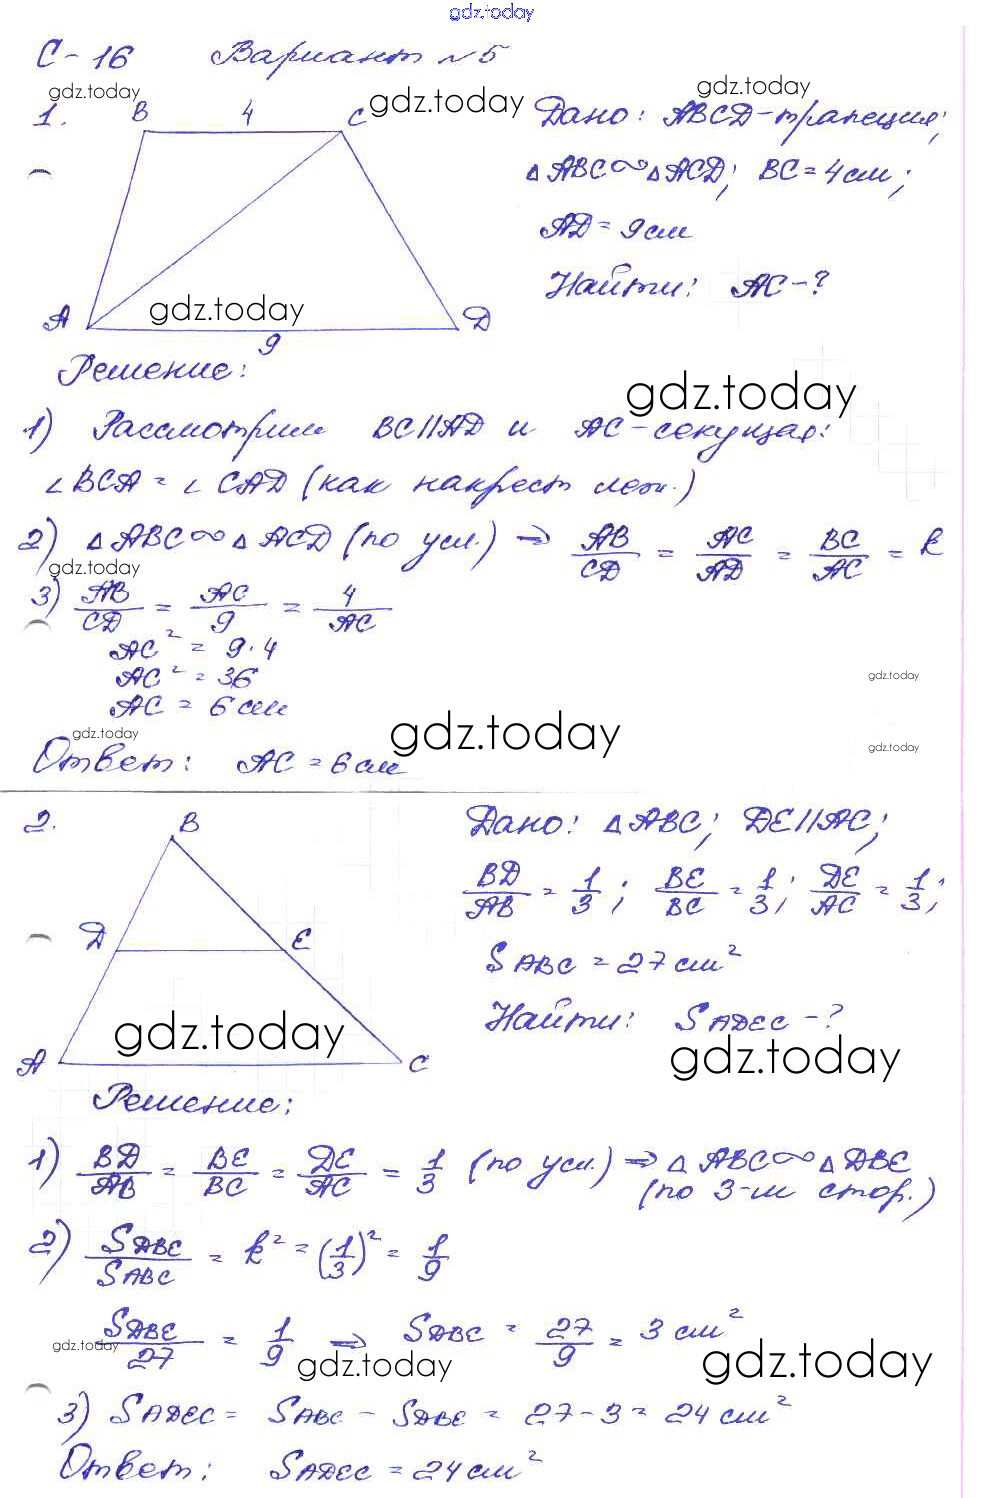 gdz.today
С-16 Вариант №5
gdz.today
gdz.today
gdz.today
1.
B 4 C
A 9 D
Дано: ABCD-трапеция;
△ABC∾△ACD; BC=4см;
AD=9см
Найти: AC-?
gdz.today
Решение:
gdz.today
1) Рассмотрим BC||AD и AC-секущая:
∠BCA = ∠CAD (как накрест леж.)
2) △ABC∾△ACD (по усл.) ⇒ AB/CD = AC/AD = BC/AC = k
gdz.today
3) AB/CD = AC/9 = 4/AC
AC² = 9·4
AC² = 36
AC = 6см
gdz.today
gdz.today
gdz.today
gdz.today
Ответ: AC=6см
2.
B
D E
A C
Дано: △ABC; DE||AC;
BD/AB = 1/3; BE/BC = 1/3; DE/AC = 1/3;
S ABC = 27см²
Найти: S ADEC -?
gdz.today
gdz.today
Решение:
1) BD/AB = BE/BC = DE/AC = 1/3 (по усл.) ⇒ △ABC∾△DBE
(по 3-м стор.)
2) S DBE/S ABC = k² = (1/3)² = 1/9
S DBE/27 = 1/9 ⇒ S DBE = 27/9 = 3 см²
gdz.today
gdz.today
gdz.today
3) S ADEC = S ABC - S DBE = 27-3 = 24см²
Ответ: S ADEC = 24см²